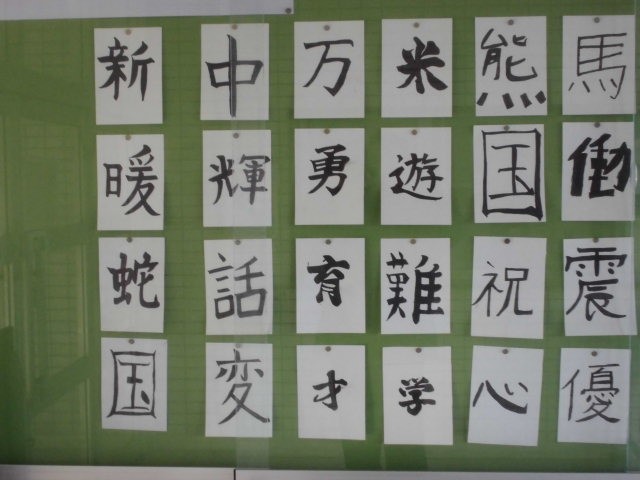 新 中 万 米 熊 馬
暖 輝 勇 遊 国 働
蛇 話 育 難 祝 震
国 変 才 学 心 優